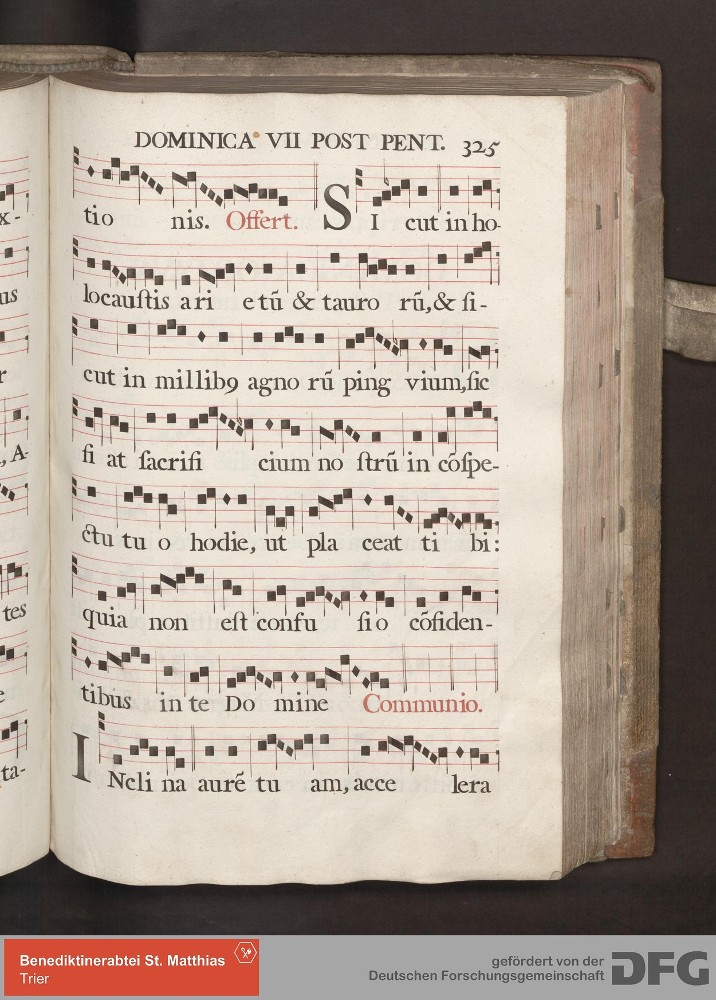 DOMINICA VII POST PENT. 325
tio nis. Offert. SI cut in ho-
locauſtis a ri e tū & tauro rū, & ſi-
cut in millibꝯ agno rū ping vium, ſic
fi at ſacrifi cium no ſtrū in cōſpe-
ctu tu o hodie, ut pla ceat ti bi:
quia non eſt confu ſi o cōfiden-
tibus in te Do mine Communio.
INcli na aurē tu am, acce lera
x-
us
r
, A-
tes
e
ta-
Benediktinerabtei St. Matthias
Trier
gefördert von der
Deutschen Forschungsgemeinschaft
DFG